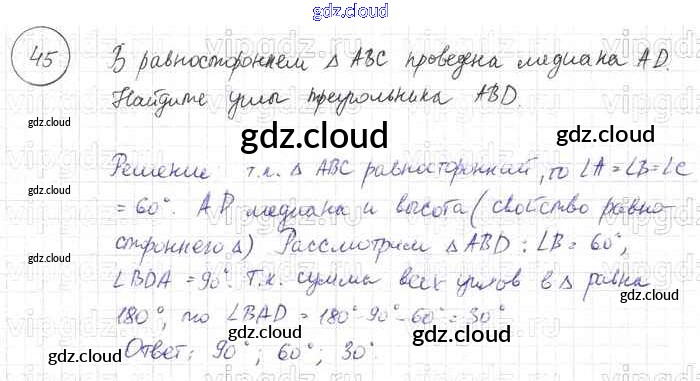 gdz.cloud
45 В равностороннем △ ABC проведена медиана AD.
Найдите углы треугольника ABD.
gdz.cloud
gdz.cloud gdz.cloud gdz.cloud
Решение т.к. △ ABC равносторонний, то ∠A = ∠B = ∠C
= 60°. AD медиана и высота (свойство равно-
стороннего △) Рассмотрим △ABD: ∠B = 60°,
gdz.cloud gdz.cloud
∠BDA = 90°. Т.к. сумма всех углов в △ равна
180°, то ∠BAD = 180°-90°-60° = 30°
gdz.cloud
Ответ: 90°; 60°; 30°.
gdz.cloud gdz.cloud
gdz.cloud